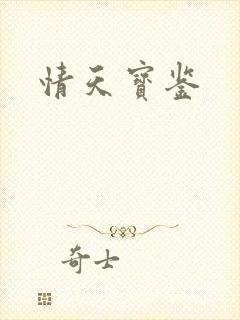 情天寶鉴
奇士